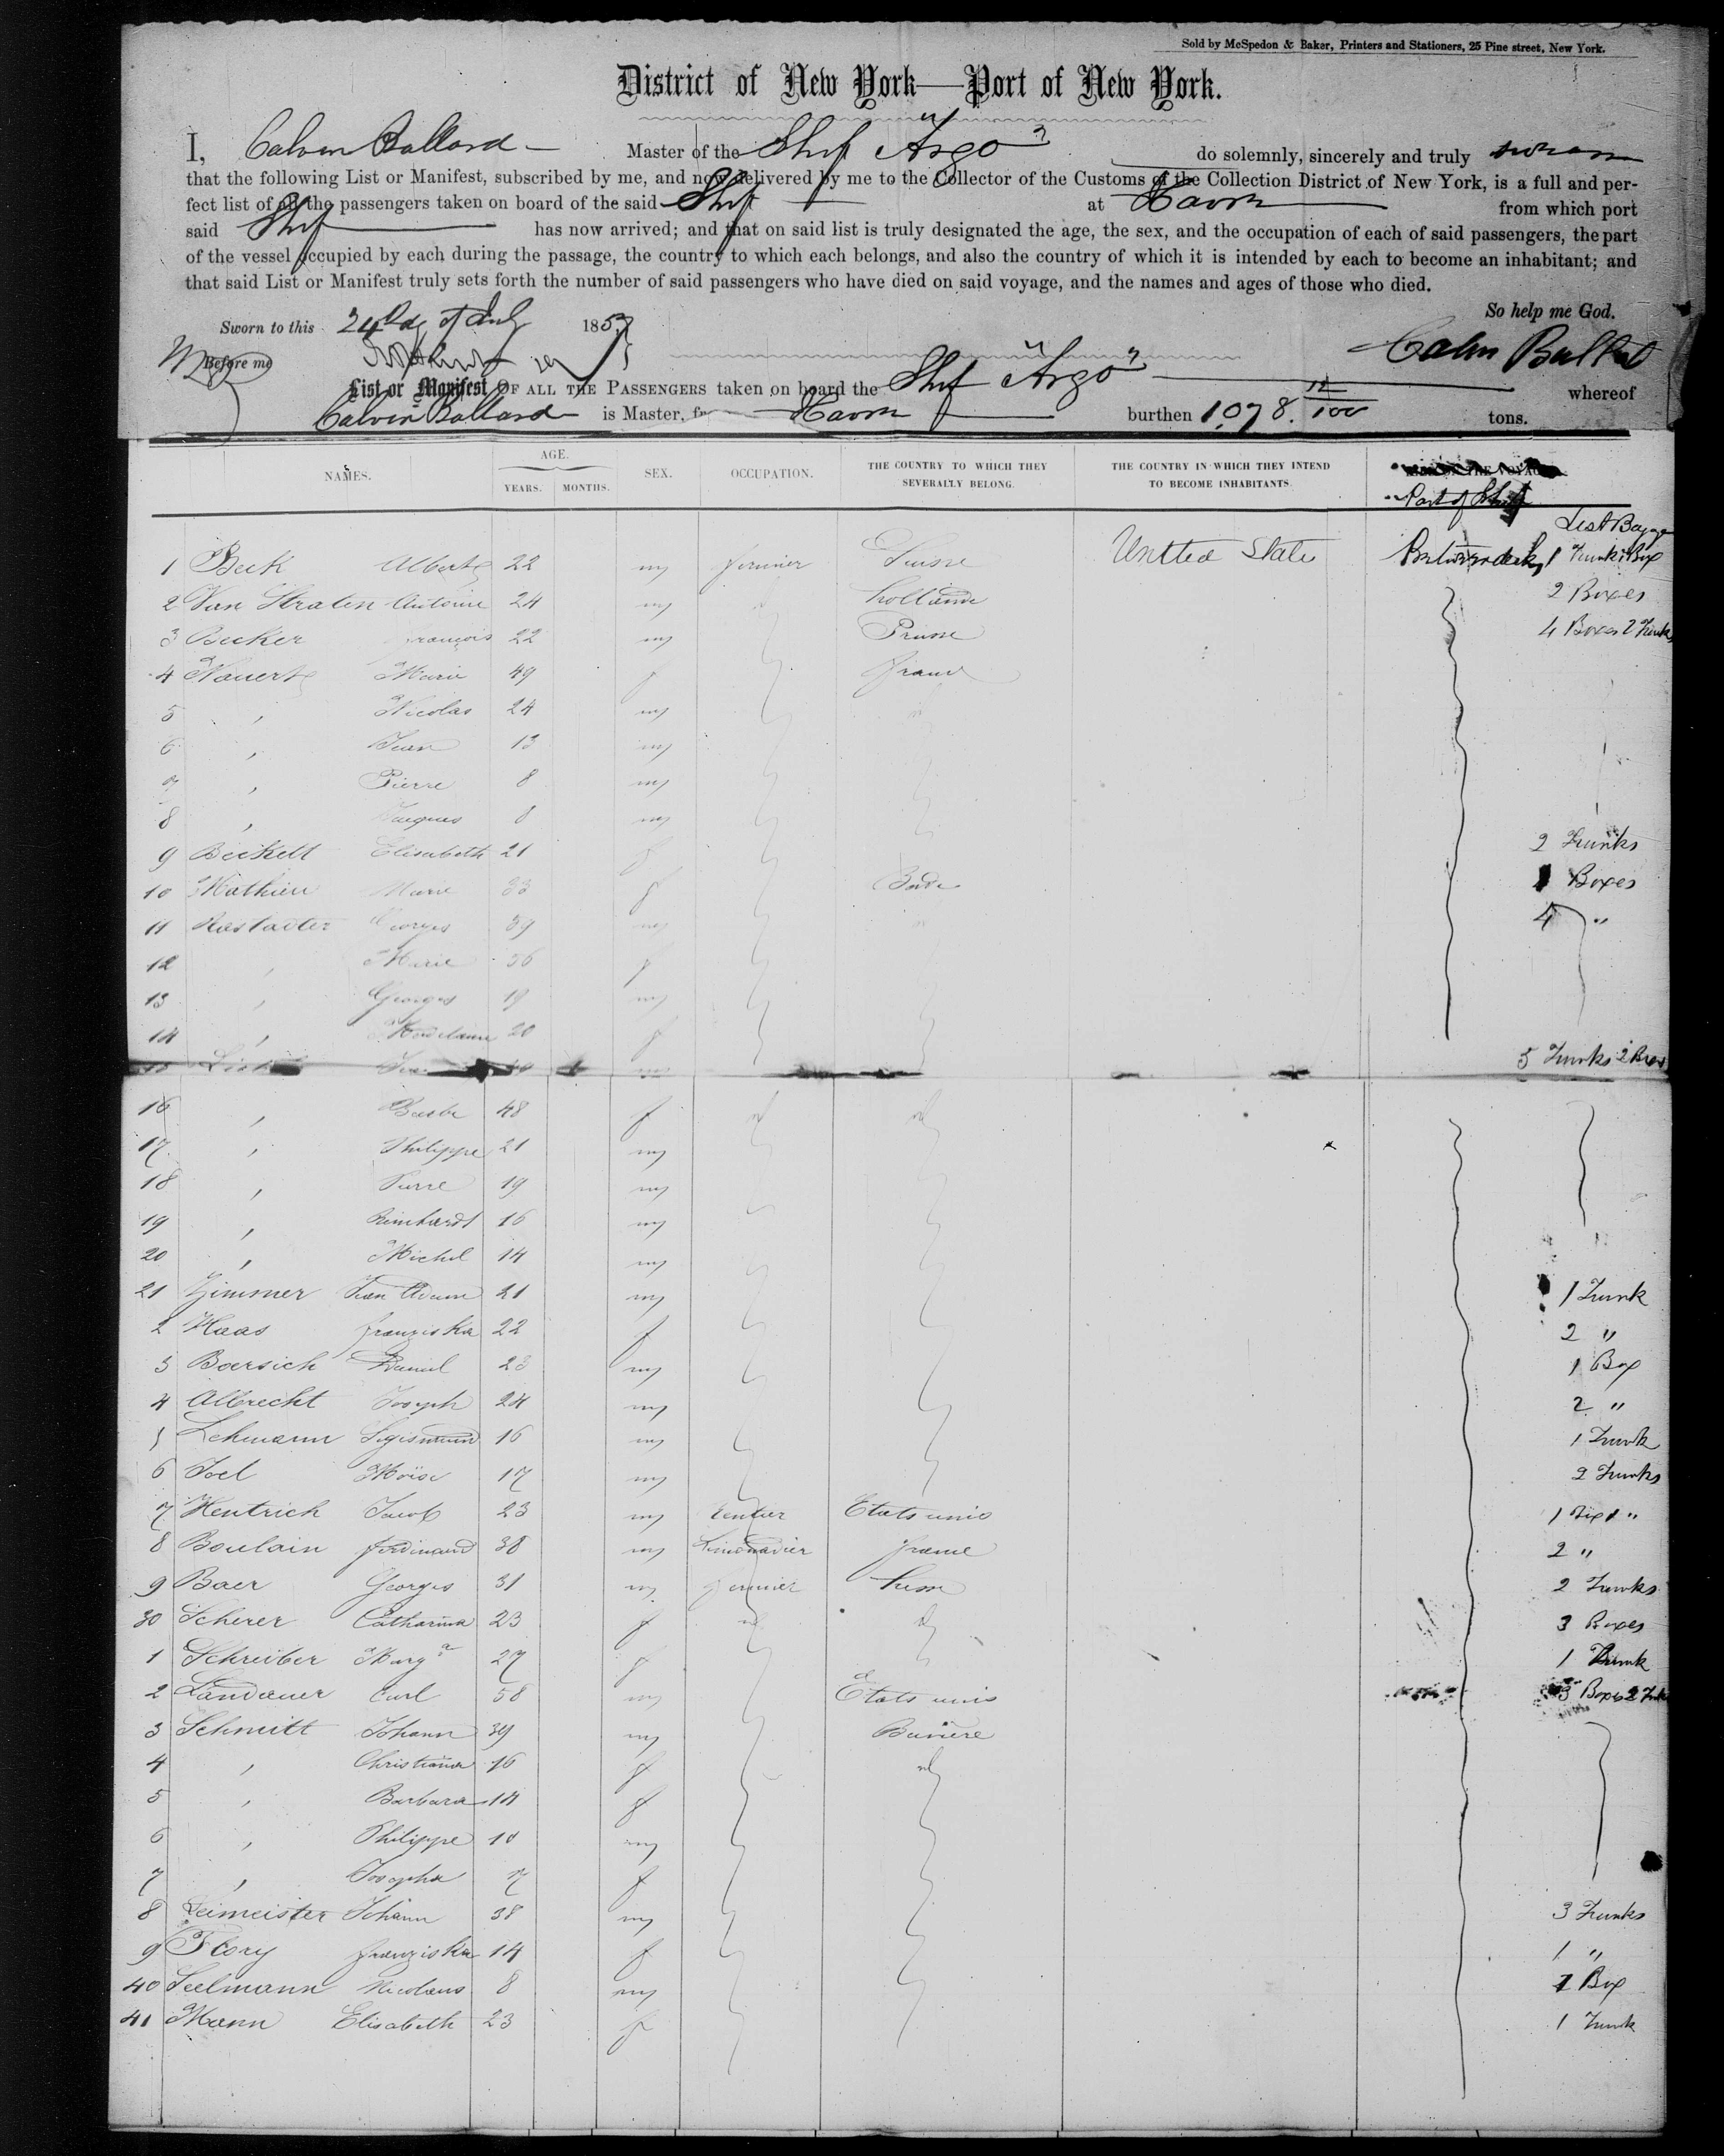 Sold by McSpedon & Baker, Printers and Stationers, 25 Pine street, New York.
District of New York—Port of New York.
I, Calvin Ballard Master of the Ship "Argo" do solemnly, sincerely and truly swear
that the following List or Manifest, subscribed by me, and now delivered by me to the Collector of the Customs of the Collection District of New York, is a full and per-
fect list of all the passengers taken on board of the said Ship at Havre from which port
said Ship has now arrived; and that on said list is truly designated the age, the sex, and the occupation of each of said passengers, the part
of the vessel occupied by each during the passage, the country to which each belongs, and also the country of which it is intended by each to become an inhabitant; and
that said List or Manifest truly sets forth the number of said passengers who have died on said voyage, and the names and ages of those who died.
So help me God.
Sworn to this 24 185
Before me
Calvin Ballard
List or Manifest OF ALL THE PASSENGERS taken on board the Ship "Argo" whereof
Calvin Ballard is Master, Havre burthen 1078. /100 tons.
NAMES. AGE. YEARS. MONTHS. SEX. OCCUPATION. THE COUNTRY TO WHICH THEY SEVERALLY BELONG. THE COUNTRY IN WHICH THEY INTEND TO BECOME INHABITANTS.
Part of Ship
1 Beck Albert 22 m fermier Suisse United State Between decks 1 Trunk 1 Box
2 Van Straten Antoine 24 m id hollande 2 Boxes
3 Becker françois 22 m Prusse 4 Boxes 2 Trunks
4 Marie 49 f france
5 , Nicolas 24 m
6 , Jean 13 m
7 , Pierre 8 m
8 , Jacques 8 m
9 Beckelt Elisabeth 21 f 2 Trunks
10 Mathieu Marie 33 f Bade 1 Boxes
11 Rastadter Georges 59 m 4 "
12 , Marie 56 f
13 , Georges 19 m
14 , Madelaine 20 f
5 Trunks 2 Boxes
16 , 48 f id id
17 , Philippe 21 m
18 , Pierre 19 m
19 , Reinhardt 16 m
20 , Michel 14 m
21 Zimmer Jean Adam 21 m 1 Trunk
2 Haas franziska 22 f 2 "
3 Boersich Daniel 23 m 1 Box
4 Albrecht Joseph 24 m 2 "
5 Lehmann Sigismund 16 m 1 Trunk
6 Joel Moïse 17 m 2 Trunks
7 Hentrich Jacob 23 m rentier Etats unis 1 Box 1 "
8 Boulain ferdinand 38 m Limonadier france 2 "
9 Baer Georges 31 m fermier 2 Trunks
30 Scherer Catharina 23 f id id 3 Boxes
1 Schreiber Marg a 27 f 1 Trunk
2 Landauer Carl 58 m Etats unis 3 Boxes 2 Trunks
3 Schmitt Johann 39 m Baviere
4 , Christiana 16 f id
5 , Barbara 14 f
6 , Philippe 10 m
7 , Josepha 7 f
8 Leimeister Johann 38 m 3 Trunks
9 Flory franziska 14 f 1 "
40 Seelmann Nicolaus 8 m 1 Box
41 Mann Elisabeth 23 f 1 Trunk